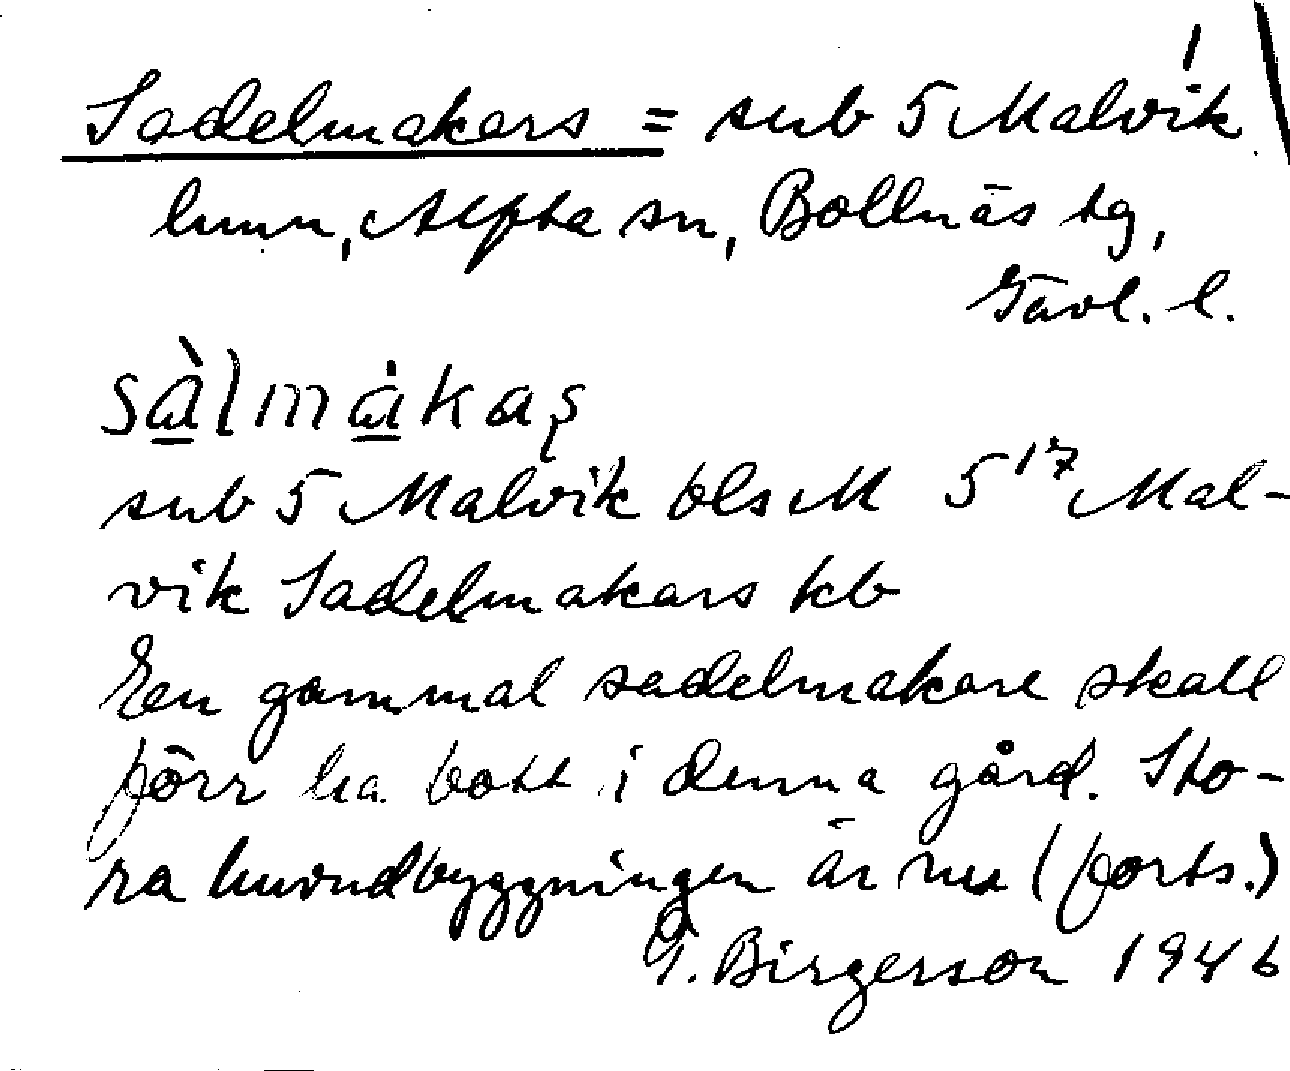 1
Sadelmakars = sub 5 Malvik
hmn, Alfta sn, Bollnäs tg,
Gävl. l.
sà̱lmȧ̱kaş
sub 5 Malvik bls M 5¹⁷ Mal-
vik Sadelmakars kb
En gammal sadelmakare skall
förr ha bott i denna gård. Sto-
ra huvudbyggningen är nu (forts.)
G. Birgerson 1946